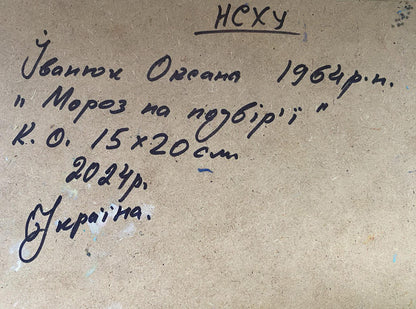 НСХУ
Іванюк Оксана 1964р.н.
"Мороз на подвір'ї"
К.О. 15×20см
2024р.
Україна.